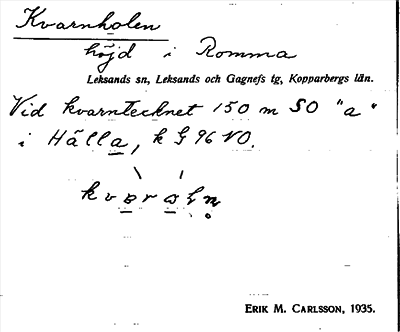 Kvarnholen
höjd i Romma
Leksands sn, Leksands och Gagnefs tg, Kopparbergs län.
Vid kvarntecknet 150 m SO "a"
i Hälla, k G 96 NO.
ERIK M. CARLSSON, 1935.